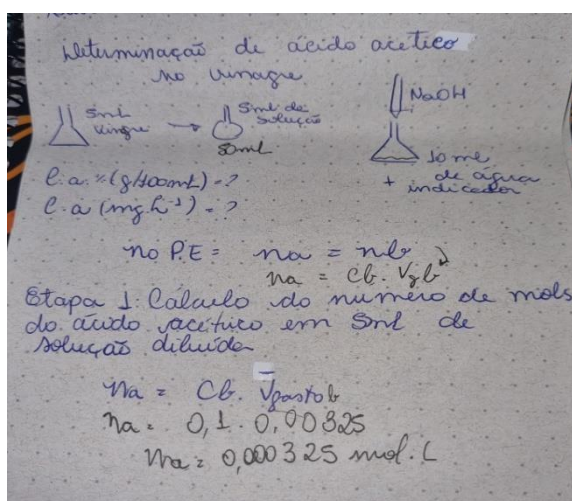 Determinação de ácido acetico
no vinagre
5ml
vingre
5ml da
solução
50ml
NaOH
10 ml
de água
+ indicador
C.a. % (g/100ml) = ?
C.a (mg.L⁻¹) = ?
no P.E = na = nb
na = Cb. Vgb
Etapa 1: Cálculo do numero de mols
do ácido acético em 5ml de
solução diluída
Na = Cb. V̅gastob
na = 0,1 . 0,00325
na = 0,000325 mol.L